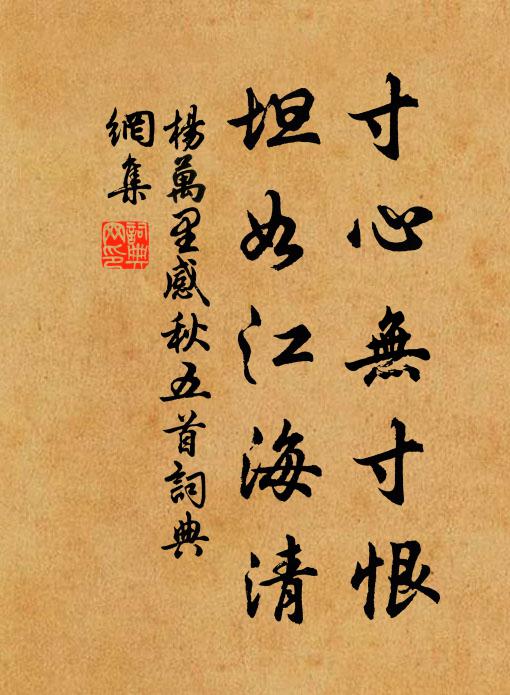 寸心無寸恨
坦如江海清
楊萬里感秋五首詞典
網集
詞典網印